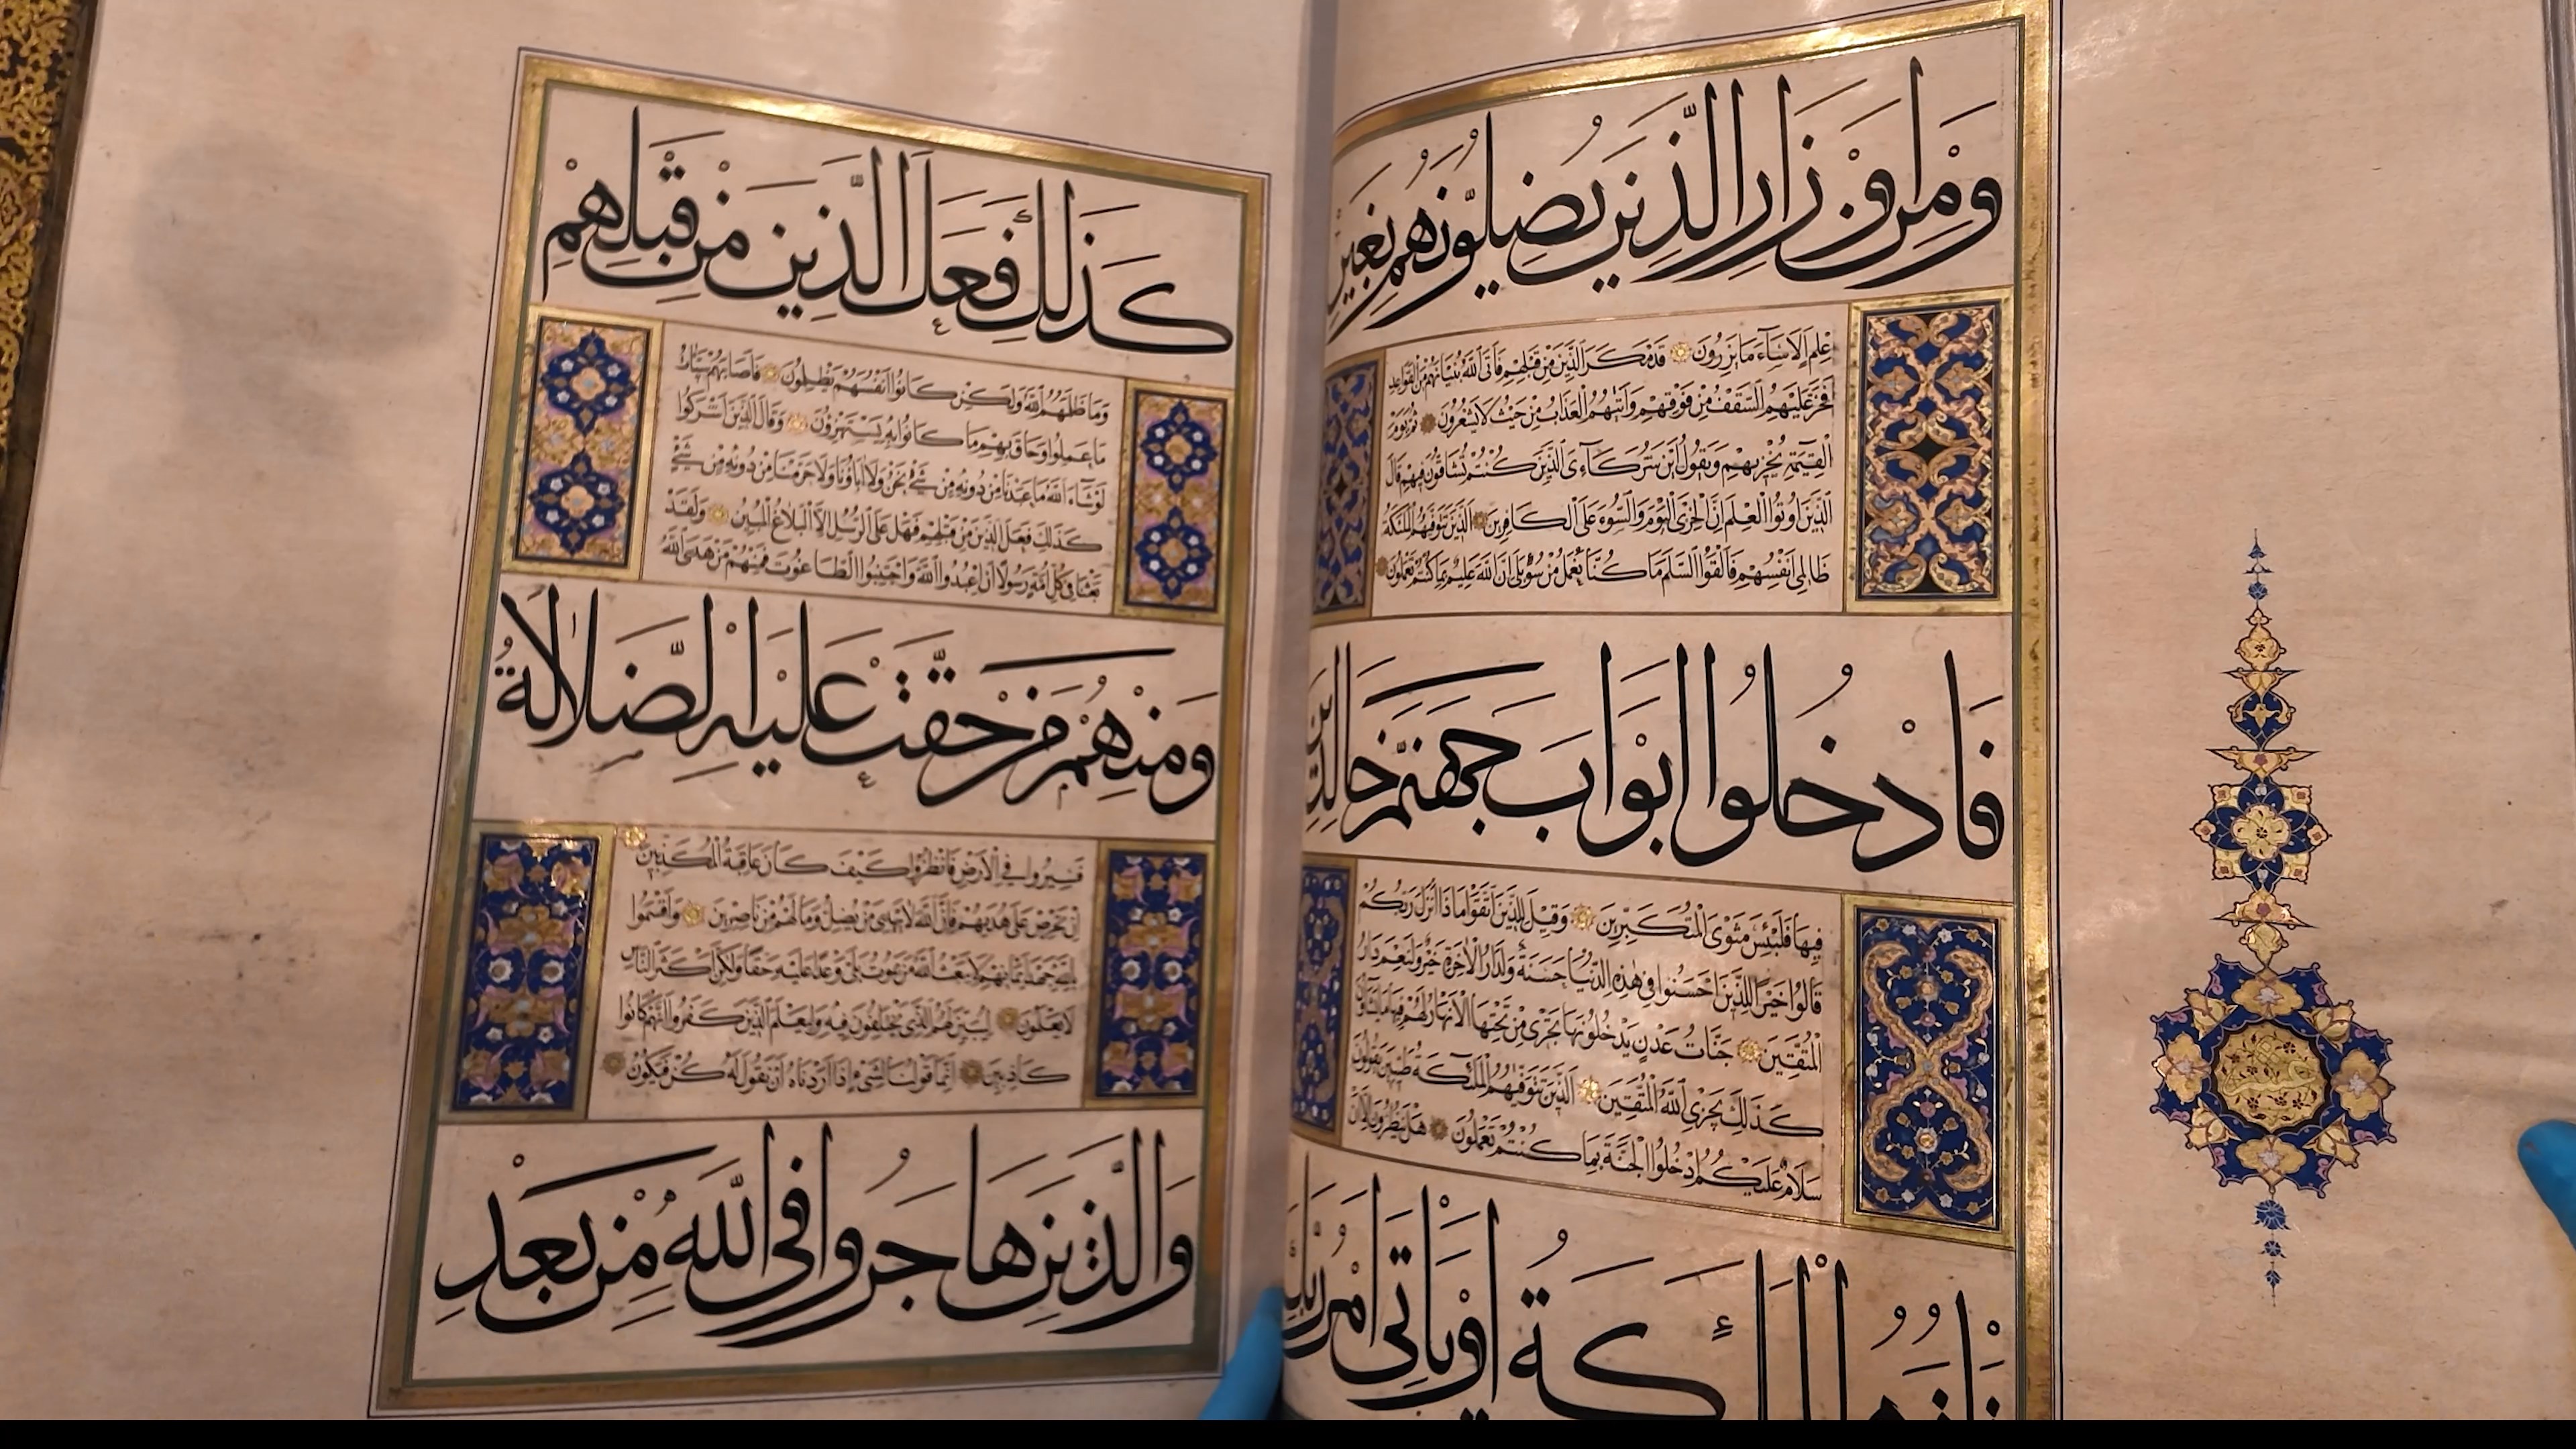 وَمِنْ اَوْزَارِ الَّذِينَ يُضِلُّونَهُمْ بِغَيْرِ
عِلْمٍ اَلَا سَاءَ مَا يَزِرُونَ قَدْ مَكَرَ الَّذِينَ مِنْ قَبْلِهِمْ فَاَتَى اللّٰهُ بُنْيَانَهُمْ مِنَ الْقَوَاعِدِ
فَخَرَّ عَلَيْهِمُ السَّقْفُ مِنْ فَوْقِهِمْ وَاَتٰيهُمُ الْعَذَابُ مِنْ حَيْثُ لَا يَشْعُرُونَ ثُمَّ يَوْمَ
الْقِيٰمَةِ يُخْزِيهِمْ وَيَقُولُ اَيْنَ شُرَكَاءِيَ الَّذِينَ كُنْتُمْ تُشَاقُّونَ فِيهِمْ قَالَ
الَّذِينَ اُوتُوا الْعِلْمَ اِنَّ الْخِزْيَ الْيَوْمَ وَالسُّوءَ عَلَى الْكَافِرِينَ الَّذِينَ تَتَوَفّٰيهُمُ الْمَلٰئِكَةُ
ظَالِمِي اَنْفُسِهِمْ فَاَلْقَوُا السَّلَمَ مَا كُنَّا نَعْمَلُ مِنْ سُوءٍ بَلٰى اِنَّ اللّٰهَ عَلِيمٌ بِمَا كُنْتُمْ تَعْمَلُونَ
فَادْخُلُوا اَبْوَابَ جَهَنَّمَ خَالِدِينَ
فِيهَا فَلَبِئْسَ مَثْوَى الْمُتَكَبِّرِينَ وَقِيلَ لِلَّذِينَ اتَّقَوْا مَاذَا اَنْزَلَ رَبُّكُمْ
قَالُوا خَيْرًا لِلَّذِينَ اَحْسَنُوا فِي هٰذِهِ الدُّنْيَا حَسَنَةٌ وَلَدَارُ الْاٰخِرَةِ خَيْرٌ وَلَنِعْمَ دَارُ
الْمُتَّقِينَ جَنَّاتُ عَدْنٍ يَدْخُلُونَهَا تَجْرِي مِنْ تَحْتِهَا الْاَنْهَارُ لَهُمْ فِيهَا مَا يَشَاؤُنَ
كَذٰلِكَ يَجْزِي اللّٰهُ الْمُتَّقِينَ الَّذِينَ تَتَوَفّٰيهُمُ الْمَلٰئِكَةُ طَيِّبِينَ يَقُولُونَ
سَلَامٌ عَلَيْكُمُ ادْخُلُوا الْجَنَّةَ بِمَا كُنْتُمْ تَعْمَلُونَ هَلْ يَنْظُرُونَ اِلَّا اَنْ
تَاْتِيَهُمُ الْمَلٰئِكَةُ اَوْ يَاْتِيَ اَمْرُ رَبِّكَ
كَذٰلِكَ فَعَلَ الَّذِينَ مِنْ قَبْلِهِمْ
وَمَا ظَلَمَهُمُ اللّٰهُ وَلٰكِنْ كَانُوا اَنْفُسَهُمْ يَظْلِمُونَ فَاَصَابَهُمْ سَيِّاٰتُ
مَا عَمِلُوا وَحَاقَ بِهِمْ مَا كَانُوا بِهِ يَسْتَهْزِؤُنَ وَقَالَ الَّذِينَ اَشْرَكُوا
لَوْ شَاءَ اللّٰهُ مَا عَبَدْنَا مِنْ دُونِهِ مِنْ شَيْءٍ نَحْنُ وَلَا اٰبَاؤُنَا وَلَا حَرَّمْنَا مِنْ دُونِهِ مِنْ شَيْءٍ
كَذٰلِكَ فَعَلَ الَّذِينَ مِنْ قَبْلِهِمْ فَهَلْ عَلَى الرُّسُلِ اِلَّا الْبَلَاغُ الْمُبِينُ وَلَقَدْ
بَعَثْنَا فِي كُلِّ اُمَّةٍ رَسُولًا اَنِ اعْبُدُوا اللّٰهَ وَاجْتَنِبُوا الطَّاغُوتَ فَمِنْهُمْ مَنْ هَدَى اللّٰهُ
وَمِنْهُمْ مَنْ حَقَّتْ عَلَيْهِ الضَّلَالَةُ
فَسِيرُوا فِي الْاَرْضِ فَانْظُرُوا كَيْفَ كَانَ عَاقِبَةُ الْمُكَذِّبِينَ
اِنْ تَحْرِصْ عَلٰى هُدٰيهُمْ فَاِنَّ اللّٰهَ لَا يَهْدِي مَنْ يُضِلُّ وَمَا لَهُمْ مِنْ نَاصِرِينَ وَاَقْسَمُوا
بِاللّٰهِ جَهْدَ اَيْمَانِهِمْ لَا يَبْعَثُ اللّٰهُ مَنْ يَمُوتُ بَلٰى وَعْدًا عَلَيْهِ حَقًّا وَلٰكِنَّ اَكْثَرَ النَّاسِ
لَا يَعْلَمُونَ لِيُبَيِّنَ لَهُمُ الَّذِي يَخْتَلِفُونَ فِيهِ وَلِيَعْلَمَ الَّذِينَ كَفَرُوا اَنَّهُمْ كَانُوا
كَاذِبِينَ اِنَّمَا قَوْلُنَا لِشَيْءٍ اِذَا اَرَدْنَاهُ اَنْ نَقُولَ لَهُ كُنْ فَيَكُونُ
وَالَّذِينَ هَاجَرُوا فِي اللّٰهِ مِنْ بَعْدِ